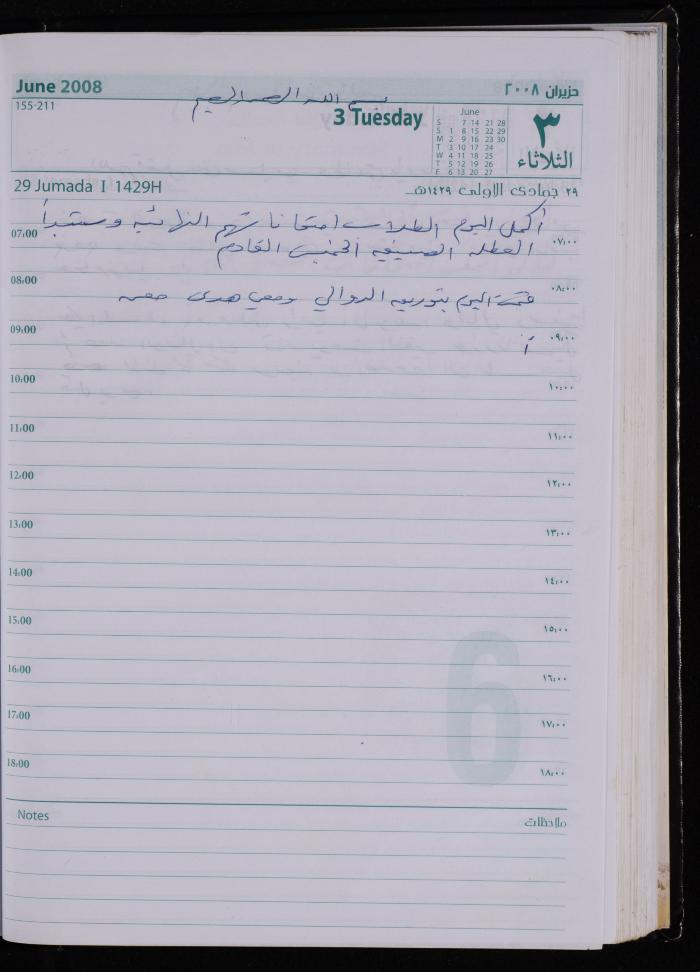 June 2008 حزيران ٢٠٠٨
بسم الله الرحمن الرحيم
155-211
3 Tuesday
June
S 7 14 21 28
S 1 8 15 22 29
M 2 9 16 23 30
T 3 10 17 24
W 4 11 18 25
T 5 12 19 26
F 6 13 20 27
٣
الثلاثاء
29 Jumada I 1429H ٢٩ جمادى الاولى ١٤٢٩هـ
أكمل اليوم الطلاب امتحاناتهم النهائيه وستبدأ
07:00 ٠٧:٠٠
العطله الصيفيه الخميس القادم
08:00 ٠٨:٠٠
قمت اليوم بتوريعه الدوالي ومعي هدى
09:00 ٠٩:٠٠
أ
10:00 ١٠:٠٠
11:00 ١١:٠٠
12:00 ١٢:٠٠
13:00 ١٣:٠٠
14:00 ١٤:٠٠
15:00 ١٥:٠٠
16:00 ١٦:٠٠
17:00 ١٧:٠٠
18:00 ١٨:٠٠
6
Notes ملاحظات